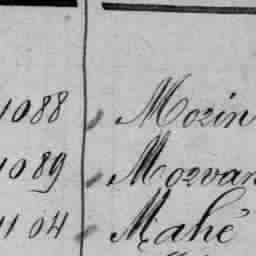 1088 „ Mozin
1089 „ Mozvan
1104 „ Mahé